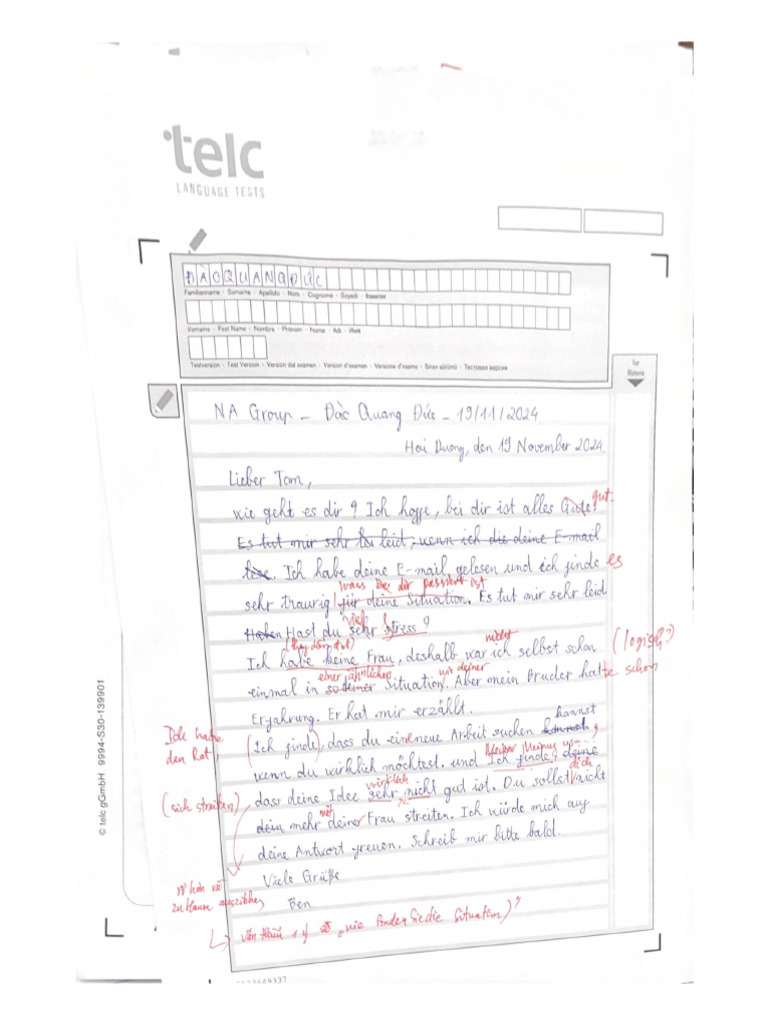 telc
LANGUAGE TESTS
ĐÀOQUANGĐỨC
Familienname · Surname · Apellido · Nom · Cognome · Soyadı · Фамилия
Vorname · First Name · Nombre · Prénom · Nome · Adı · Имя
Testversion · Test Version · Versión del examen · Version d'examen · Versione d'esame · Sınav sürümü · Тестовая версия
für
Raters
NA Group - Đào Quang Đức - 19/11/2024
Hai Duong, den 19 November 2024.
Lieber Tom,
wie geht es dir? Ich hoffe, bei dir ist alles Gute! gut.
Es tut mir sehr leid, wenn ich die deine E-mail
Ich habe deine E-mail gelesen und ich finde es
was bei dir passiert ist
sehr traurig für deine Situation. Es tut mir sehr leid
viel
Haben Hast du sehr stress?
nicht
Ich habe keine Frau, deshalb war ich selbst schon (logisch?)
einer ähnlichen wie deiner
einmal in so deiner Situation. Aber mein Bruder hatte schon
Erfahrung. Er hat mir erzählt. kannst
Ich habe
den Rat,
(Ich finde), dass du eine neue Arbeit suchen kannst,
wenn du wirklich möchtest. und Ich finde, deine
wirklich dich
dass deine Idee sehr nicht gut ist. Du sollst nicht
(sich streiten)
mit
dein mehr deiner Frau streiten. Ich würde mich auf
deine Antwort freuen. Schreib mir bitte bald.
Viele Grüße
Ben.
zu Hause
"wie finden Sie die Situation)"
© telc gGmbH 9994-S30-139901